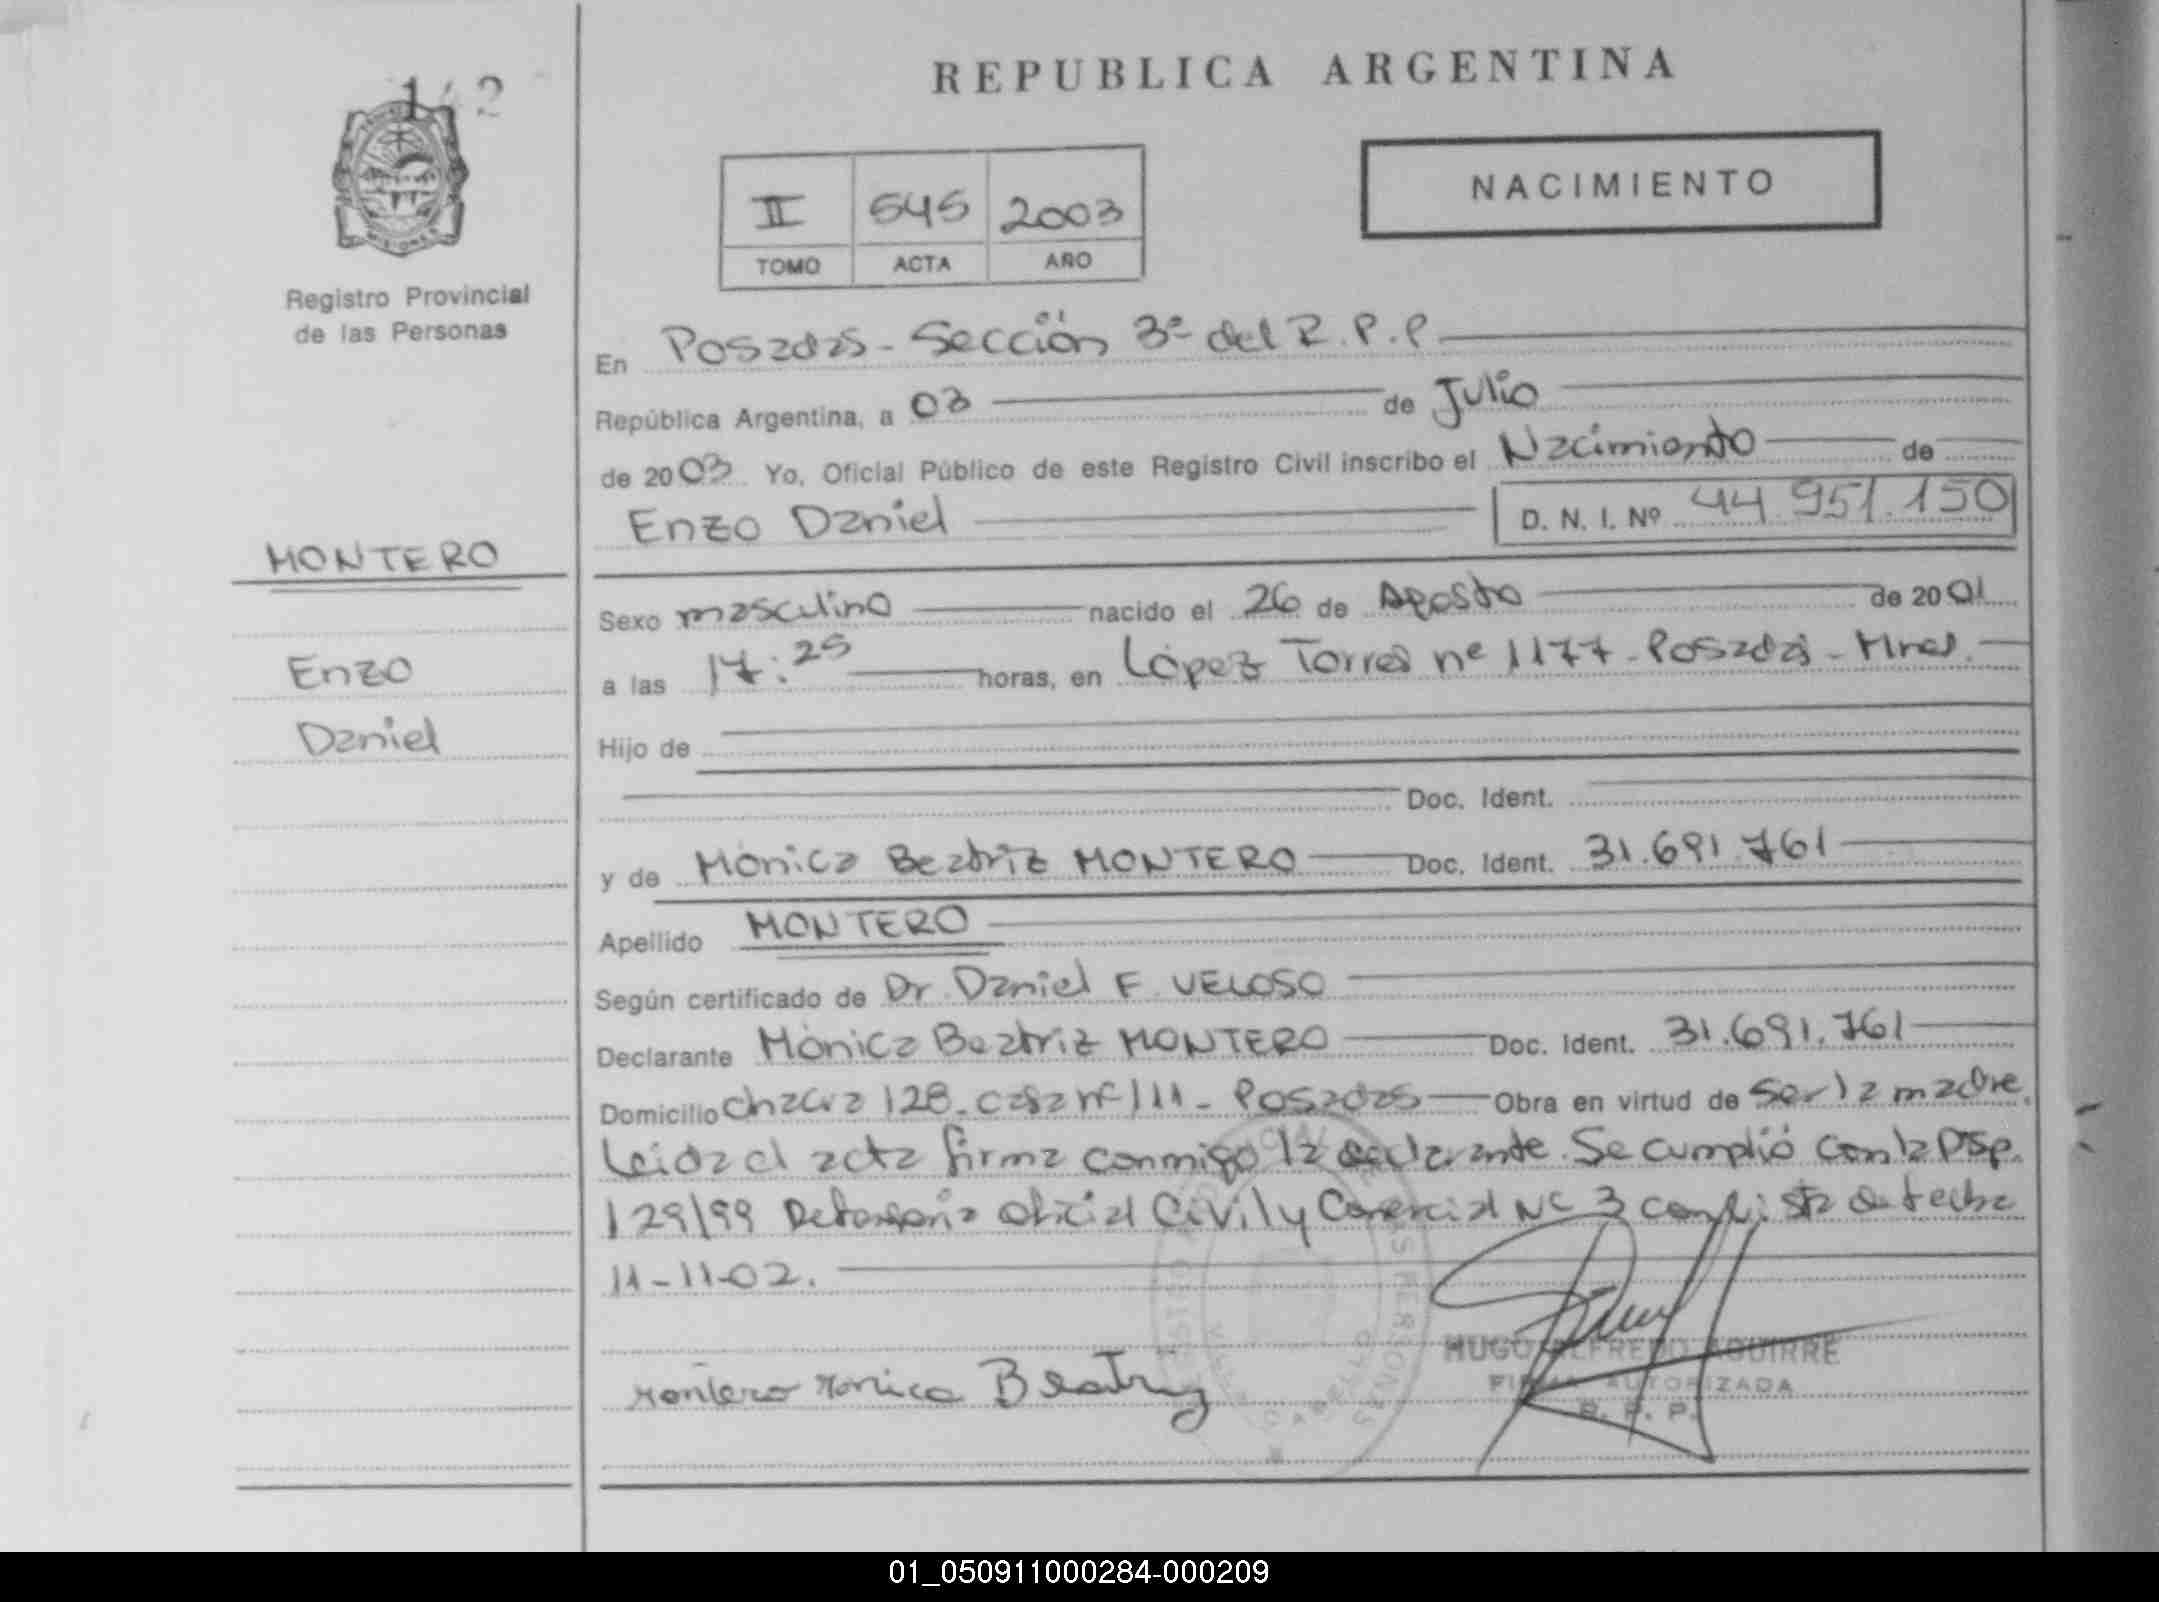 REPUBLICA ARGENTINA
NACIMIENTO
II 545 2003
TOMO ACTA AÑO
Registro Provincial
de las Personas
En Posadas - Sección 3ª del R.P.P.
República Argentina, a 03 de Julio
de 2003 Yo, Oficial Público de este Registro Civil inscribo el Nacimiento de
Enzo Daniel D. N. I. Nº 44.951.150
MONTERO
Enzo
Daniel
Sexo masculino nacido el 26 de Agosto de 2001
a las 17:25 horas, en López Torres nº 1177 - Posadas - Mnes.
Hijo de
Doc. Ident.
y de Mónica Beatriz MONTERO Doc. Ident. 31.691.761
Apellido MONTERO
Según certificado de Dr. Daniel F. VELOSO
Declarante Mónica Beatriz MONTERO Doc. Ident. 31.691.761
Domicilio Chacra 128 - casa nº 111 - Posadas Obra en virtud de ser la madre.
Leída el acta firma conmigo la declarante. Se cumplió con la Disp.
129/99 Defensoría Oficial Civil y Comercial Nº 3 con vista de fecha
11-11-02.
Montero Monica Beatriz
HUGO ALFREDO AGUIRRE
FIRMA AUTORIZADA
R. P. P.
01_050911000284-000209